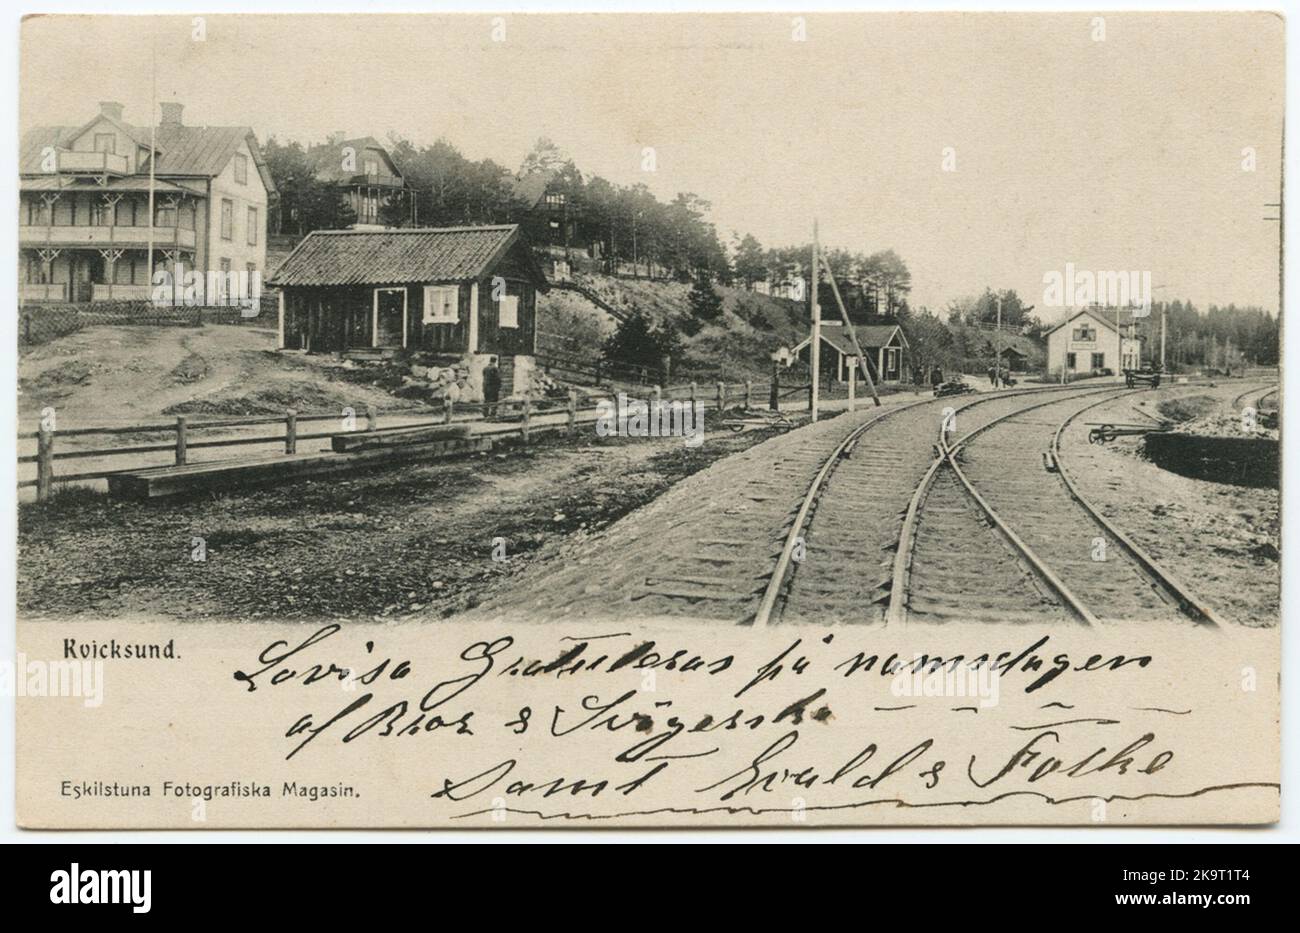 Kvicksund.
Lovisa Gratuleras på namsdagen
af Bror & Svägerska
Samt Evald & Folke
Eskilstuna Fotografiska Magasin.
a
alamy
alamy
Image ID: 2K9T1T4
www.alamy.com